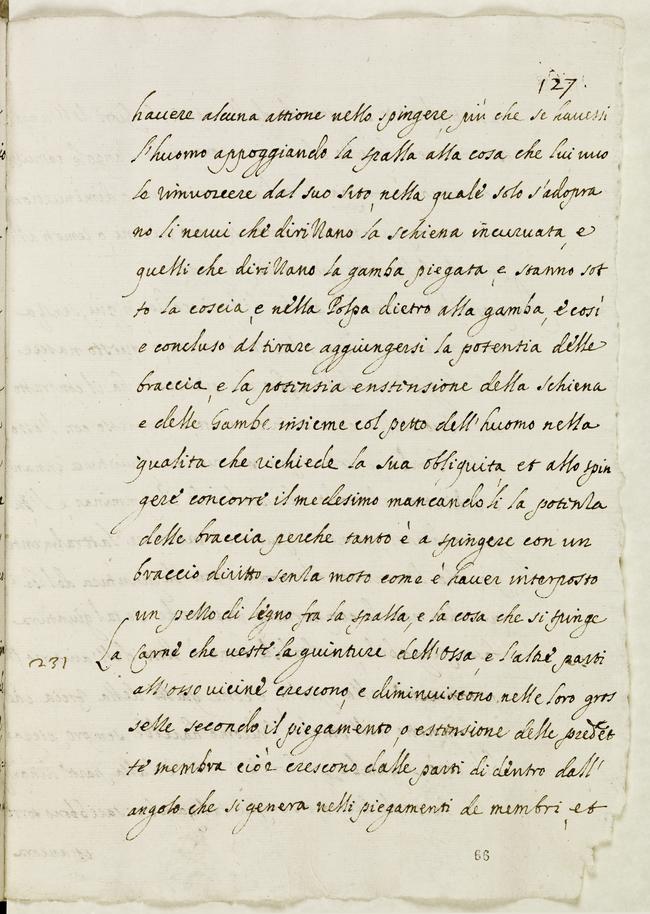 127.
hauere alcuna attione nello spingere, più che se hauessi
l'huomo appoggiando la spalla alla cosa che lui uuo
le rimuouere dal suo sito, nella quale solo s'adopra
no li nerui che dirizzano la schiena incuruata, e
quelli che dirizzano la gamba piegata, e stanno sot
to la coscia, e nella Polpa dietro alla gamba, e così
e concluso al tirare aggiungersi la potentia delle
braccia, e la potentia enstensione della schiena
e delle Gambe insieme col petto dell'huomo nella
qualita che richiede la sua obliquità, et allo spin
gere concorre il medesimo mancandoli la potenza
delle braccia perche tanto è a spingere con un
braccio diritto senza moto come è hauer interposto
un pezzo di legno fra la spalla, e la cosa che si spinge
231 La Carne che veste la giunture dell'ossa, e l'altre parti
all'osso vicine crescono, e diminuiscono nelle loro gros
sezze secondo il piegamento, o estensione delle predet
te membra cioè crescono dalle parti di dentro dall'
angolo che si genera nelli piegamenti de membri, et
66